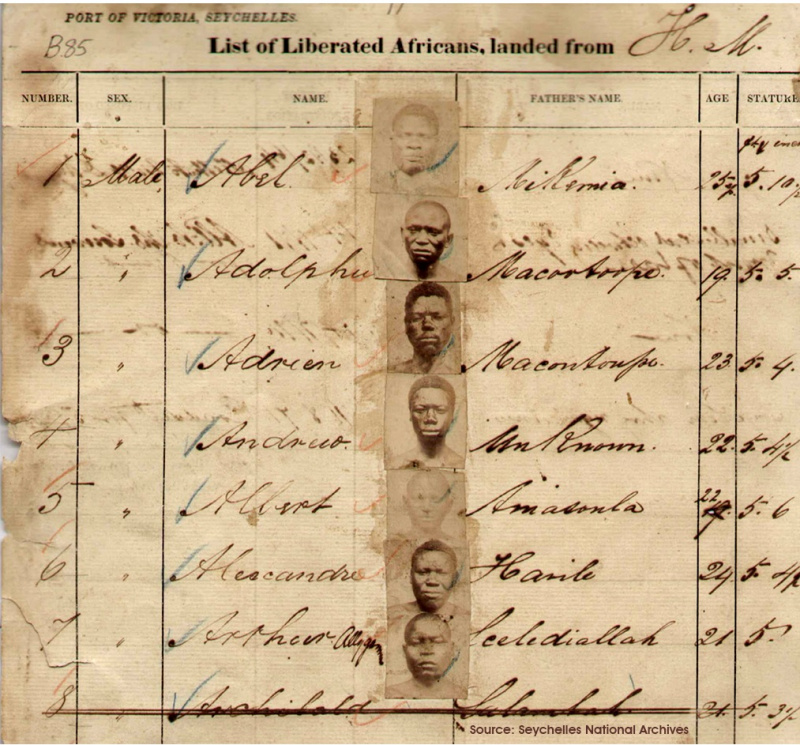 PORT OF VICTORIA, SEYCHELLES.
B85 List of Liberated Africans, landed from H. M.
NUMBER. SEX. NAME. FATHER'S NAME. AGE STATURE
1 Male, Abel. 25 5. 10
2 " Adolphe Macortorpe. 19 5. 5.
3 " Adrien Macontoupe. 23 5. 4.
4 " Andrew. UnKnown. 22 5. 4½
5 " Albert Amasonla 22 5. 6
6 " Alexandre Harile 24 5. 4½
7 " Arthur 21 5.
8 " Archibald 21. 5. 3½
Source: Seychelles National Archives